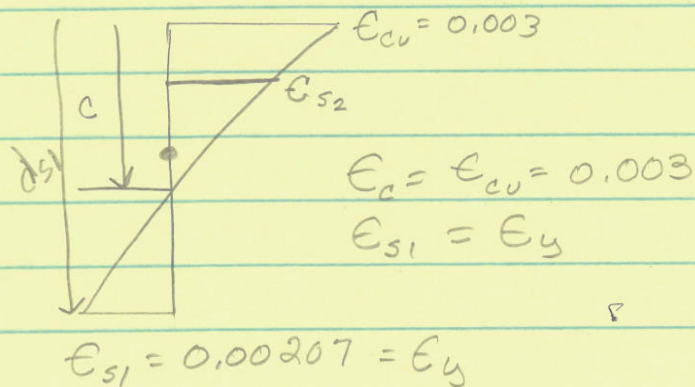 ϵcu = 0.003
ϵs2
c
ds1
ϵc = ϵcu = 0.003
ϵs1 = ϵy
ϵs1 = 0.00207 = ϵy